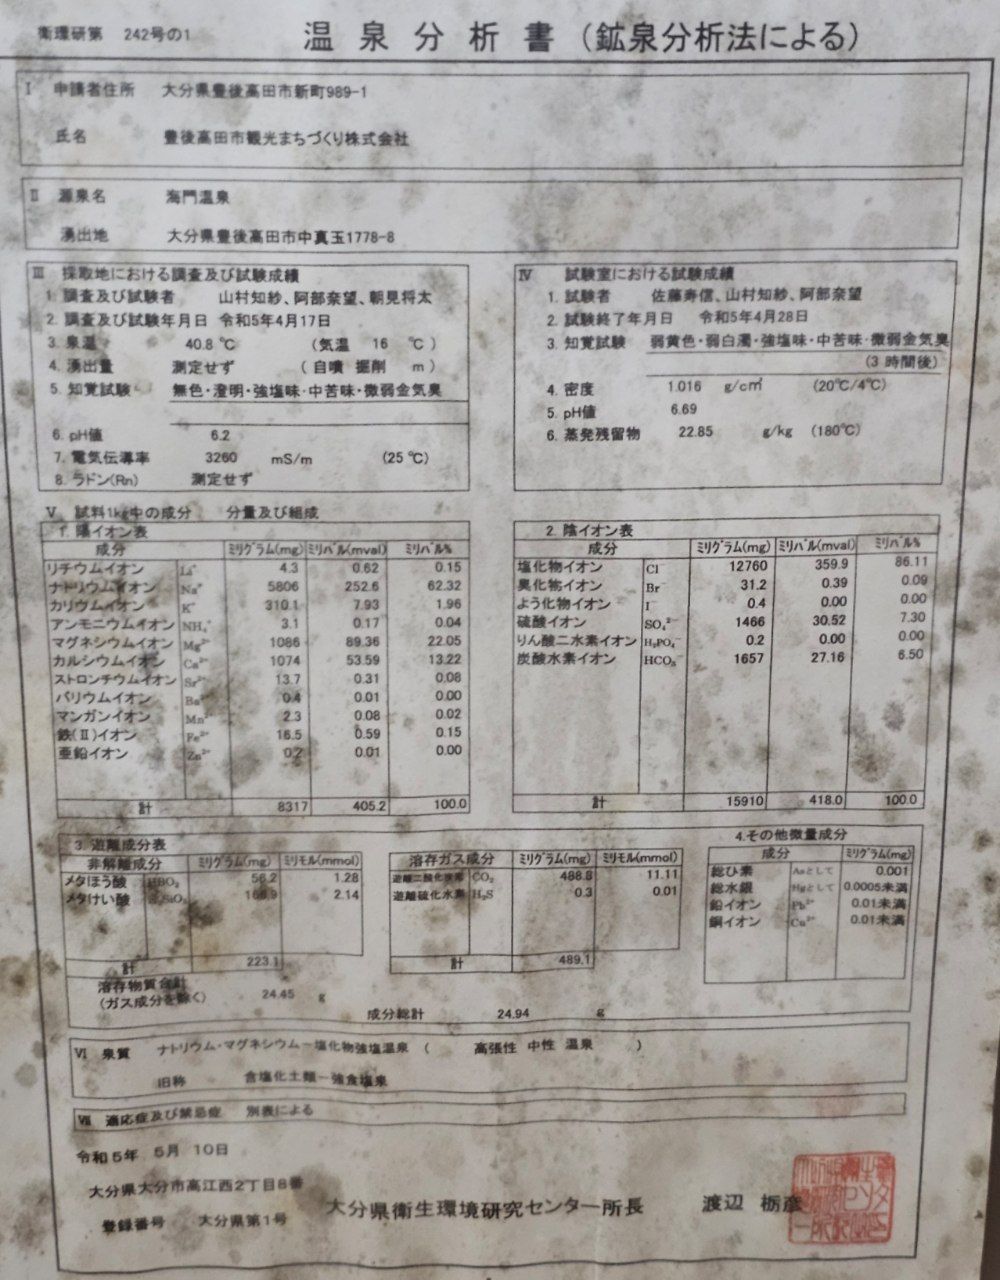 衛環研第 242号の1
温泉分析書(鉱泉分析法による)
Ⅰ 申請者住所 大分県豊後高田市新町989-1
氏名 豊後高田市観光まちづくり株式会社
Ⅱ 源泉名 海門温泉
湧出地 大分県豊後高田市中真玉1778-8
Ⅲ 採取地における調査及び試験成績
1. 調査及び試験者 山村知紗、阿部奈望、朝見将太
2. 調査及び試験年月日 令和5年4月17日
3. 泉温 40.8 ℃ (気温 16 ℃)
4. 湧出量 測定せず (自噴 掘削 m)
5. 知覚試験 無色・澄明・強塩味・中苦味・微弱金気臭
6. pH値 6.2
7. 電気伝導率 3260 mS/m (25℃)
8. ラドン(Rn) 測定せず
Ⅳ 試験室における試験成績
1. 試験者 佐藤寿信、山村知紗、阿部奈望
2. 試験終了年月日 令和5年4月28日
3. 知覚試験 弱黄色・弱白濁・強塩味・中苦味・微弱金気臭
(3 時間後)
4. 密度 1.016 g/cm³ (20℃/4℃)
5. pH値 6.69
6. 蒸発残留物 22.85 g/kg (180℃)
Ⅴ 試料1kg中の成分 分量及び組成
1. 陽イオン表
成分 ミリグラム(mg) ミリバル(mval) ミリバル%
リチウムイオン Li⁺ 4.3 0.62 0.15
ナトリウムイオン Na⁺ 5806 252.6 62.32
カリウムイオン K⁺ 310.1 7.93 1.96
アンモニウムイオン NH₄⁺ 3.1 0.17 0.04
マグネシウムイオン Mg²⁺ 1086 89.36 22.05
カルシウムイオン Ca²⁺ 1074 53.59 13.22
ストロンチウムイオン Sr²⁺ 13.7 0.31 0.08
バリウムイオン Ba²⁺ 0.4 0.01 0.00
マンガンイオン Mn²⁺ 2.3 0.08 0.02
鉄(Ⅱ)イオン Fe²⁺ 16.5 0.59 0.15
亜鉛イオン Zn²⁺ 0.2 0.01 0.00
計 8317 405.2 100.0
2. 陰イオン表
成分 ミリグラム(mg) ミリバル(mval) ミリバル%
塩化物イオン Cl⁻ 12760 359.9 86.11
臭化物イオン Br⁻ 31.2 0.39 0.09
よう化物イオン I⁻ 0.4 0.00 0.00
硫酸イオン SO₄²⁻ 1466 30.52 7.30
りん酸二水素イオン H₂PO₄⁻ 0.2 0.00 0.00
炭酸水素イオン HCO₃⁻ 1657 27.16 6.50
計 15910 418.0 100.0
3. 遊離成分表
非解離成分 ミリグラム(mg) ミリモル(mmol)
メタほう酸 HBO₂ 56.2 1.28
メタけい酸 H₂SiO₃ 166.9 2.14
計 223.1
溶存ガス成分 ミリグラム(mg) ミリモル(mmol)
遊離二酸化炭素 CO₂ 488.8 11.11
遊離硫化水素 H₂S 0.3 0.01
計 489.1
4.その他微量成分
成分 ミリグラム(mg)
総ひ素 Asとして 0.001
総水銀 Hgとして 0.0005未満
鉛イオン Pb²⁺ 0.01未満
銅イオン Cu²⁺ 0.01未満
溶存物質合計
(ガス成分を除く) 24.45 g
成分総計 24.94 g
Ⅵ 泉質 ナトリウム・マグネシウム-塩化物強塩温泉 ( 高張性 中性 温泉 )
旧称 含塩化土類-強食塩泉
Ⅶ 適応症及び禁忌症 別表による
令和5年 5月 10日
大分県大分市高江西2丁目8番
登録番号 大分県第1号
大分県衛生環境研究センター所長 渡辺 栃彦